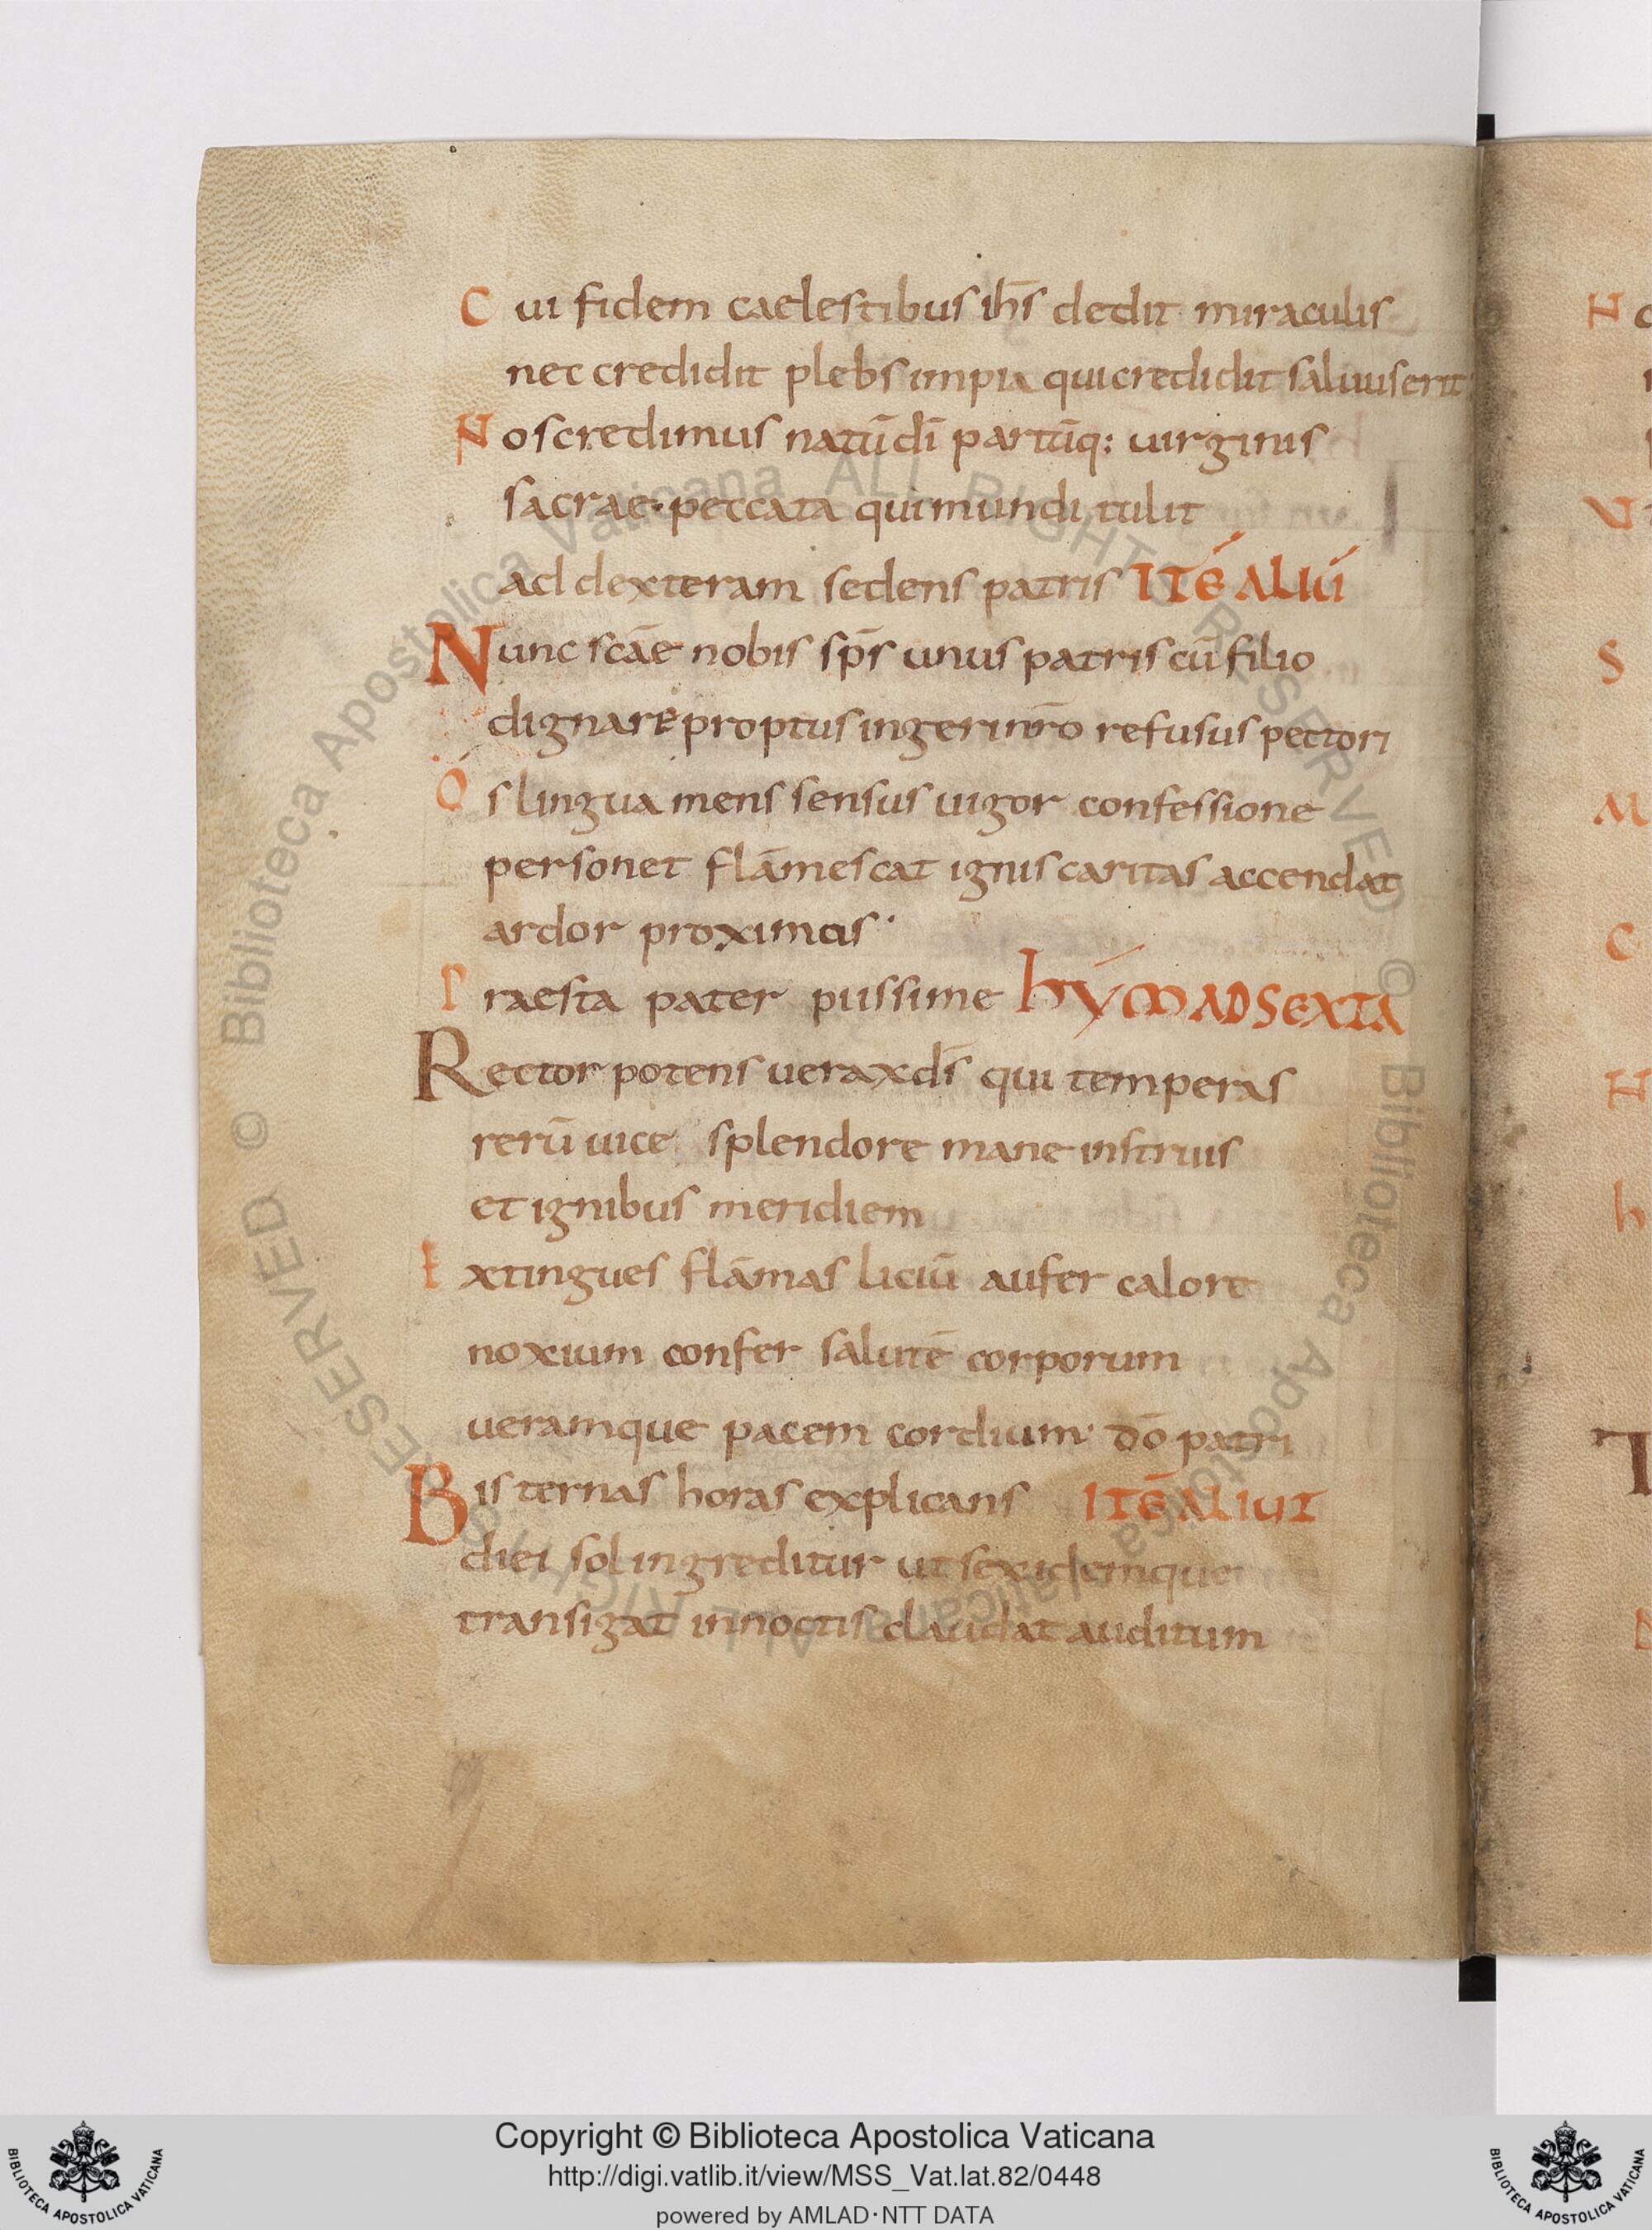 Cui fidem caelestibus ihs̄ dedit miraculis
nec credidit plebs impia qui credidit saluus erit
Nos credimus natū dī partūq: uirginis
sacrae peccata qui mundi tulit
ad dexteram sedens patris ITĒ ALIŪ
Nunc scāe nobis sp̄s unus patris cū filio
dignare proptus ingeri nr̄o refusus pectori
Os lingua mens sensus uigor confessione
personet flāmescat ignis caritas accendat
ardor proximos
Praesta pater piissime hȳm AD SEXTA
Rector potens uerax ds̄ qui temperas
rerū uice splendore mane instruis
et ignibus meridiem
Extingues flāmas liciū aufer calore
noxium confer salutē corporum
ueramque pacem cordium dō patri
Bis ternas horas explicans ITĒ ALIUT
diei sol ingreditur ut sex idemque
transigat in noctis claudat auditum
Copyright © Biblioteca Apostolica Vaticana
http://digi.vatlib.it/view/MSS_Vat.lat.82/0448
powered by AMLAD·NTT DATA
BIBLIOTECA APOSTOLICA VATICANA
BIBLIOTECA APOSTOLICA VATICANA
© Biblioteca Apostolica Vaticana ALL RIGHTS RESERVED © Biblioteca Apostolica Vaticana ALL RIGHTS RESERVED